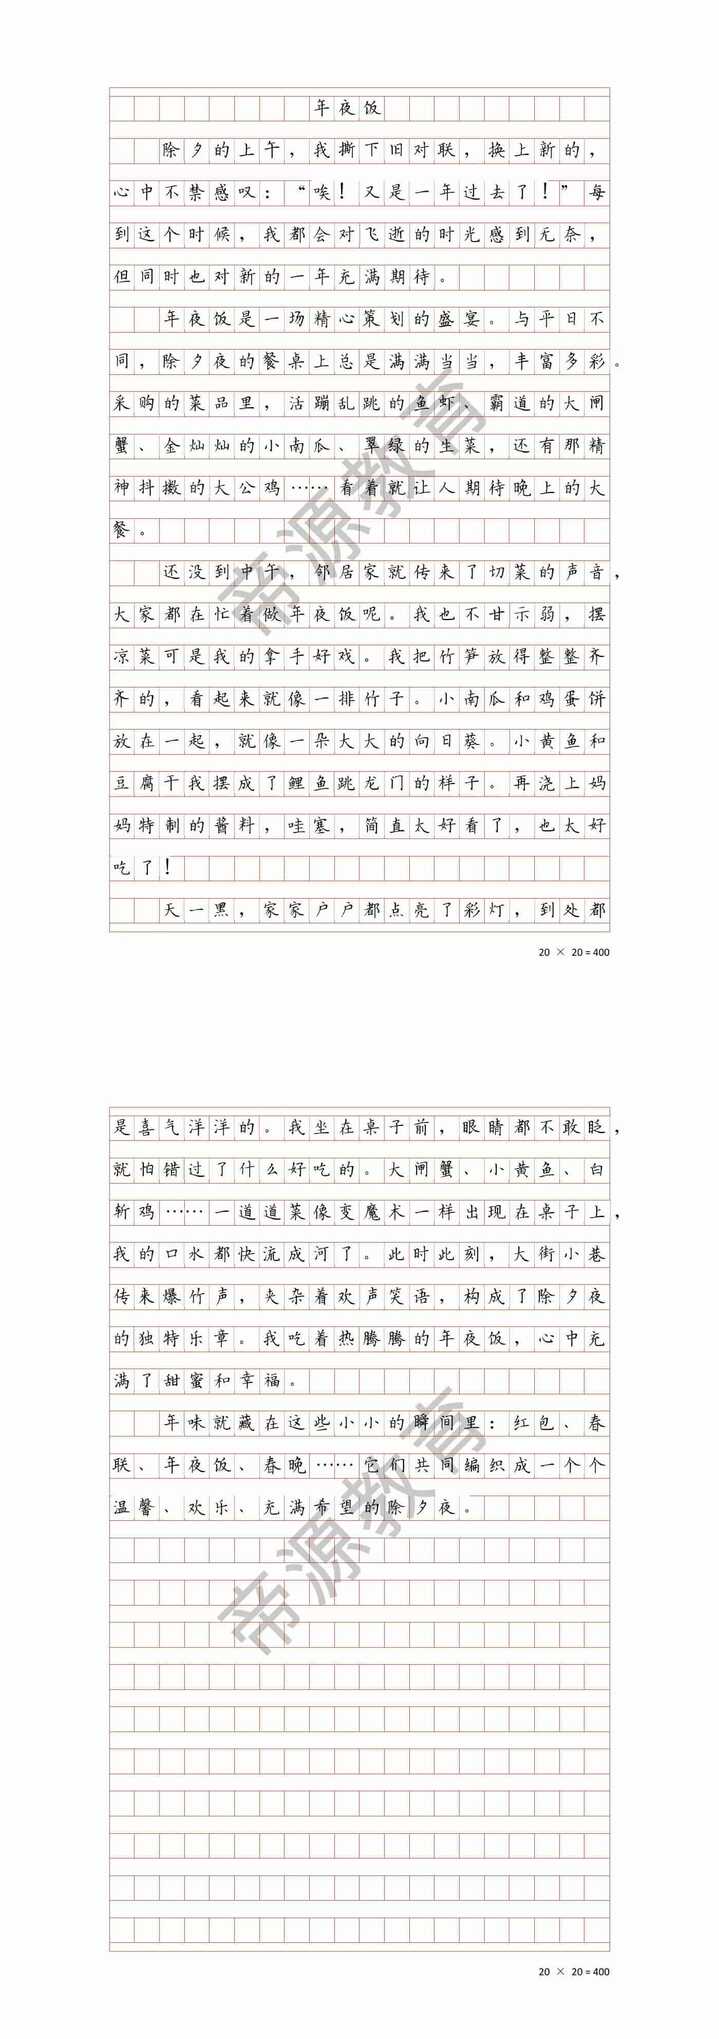 年夜饭
除夕的上午，我撕下旧对联，换上新的，
心中不禁感叹：“唉！又是一年过去了！”每
到这个时候，我都会对飞逝的时光感到无奈，
但同时也对新的一年充满期待。
年夜饭是一场精心策划的盛宴。与平日不
同，除夕夜的餐桌上总是满满当当，丰富多彩。
采购的菜品里，活蹦乱跳的鱼虾、霸道的大闸
蟹、金灿灿的小南瓜、翠绿的生菜，还有那精
神抖擞的大公鸡……看着就让人期待晚上的大
餐。
还没到中午，邻居家就传来了切菜的声音，
大家都在忙着做年夜饭呢。我也不甘示弱，摆
凉菜可是我的拿手好戏。我把竹笋放得整整齐
齐的，看起来就像一排竹子。小南瓜和鸡蛋饼
放在一起，就像一朵大大的向日葵。小黄鱼和
豆腐干我摆成了鲤鱼跳龙门的样子。再浇上妈
妈特制的酱料，哇塞，简直太好看了，也太好
吃了！
天一黑，家家户户都点亮了彩灯，到处都
帝源教育
20 × 20 = 400
是喜气洋洋的。我坐在桌子前，眼睛都不敢眨，
就怕错过了什么好吃的。大闸蟹、小黄鱼、白
斩鸡……一道道菜像变魔术一样出现在桌子上，
我的口水都快流成河了。此时此刻，大街小巷
传来爆竹声，夹杂着欢声笑语，构成了除夕夜
的独特乐章。我吃着热腾腾的年夜饭，心中充
满了甜蜜和幸福。
年味就藏在这些小小的瞬间里：红包、春
联、年夜饭、春晚……它们共同编织成一个个
温馨、欢乐、充满希望的除夕夜。
帝源教育
20 × 20 = 400